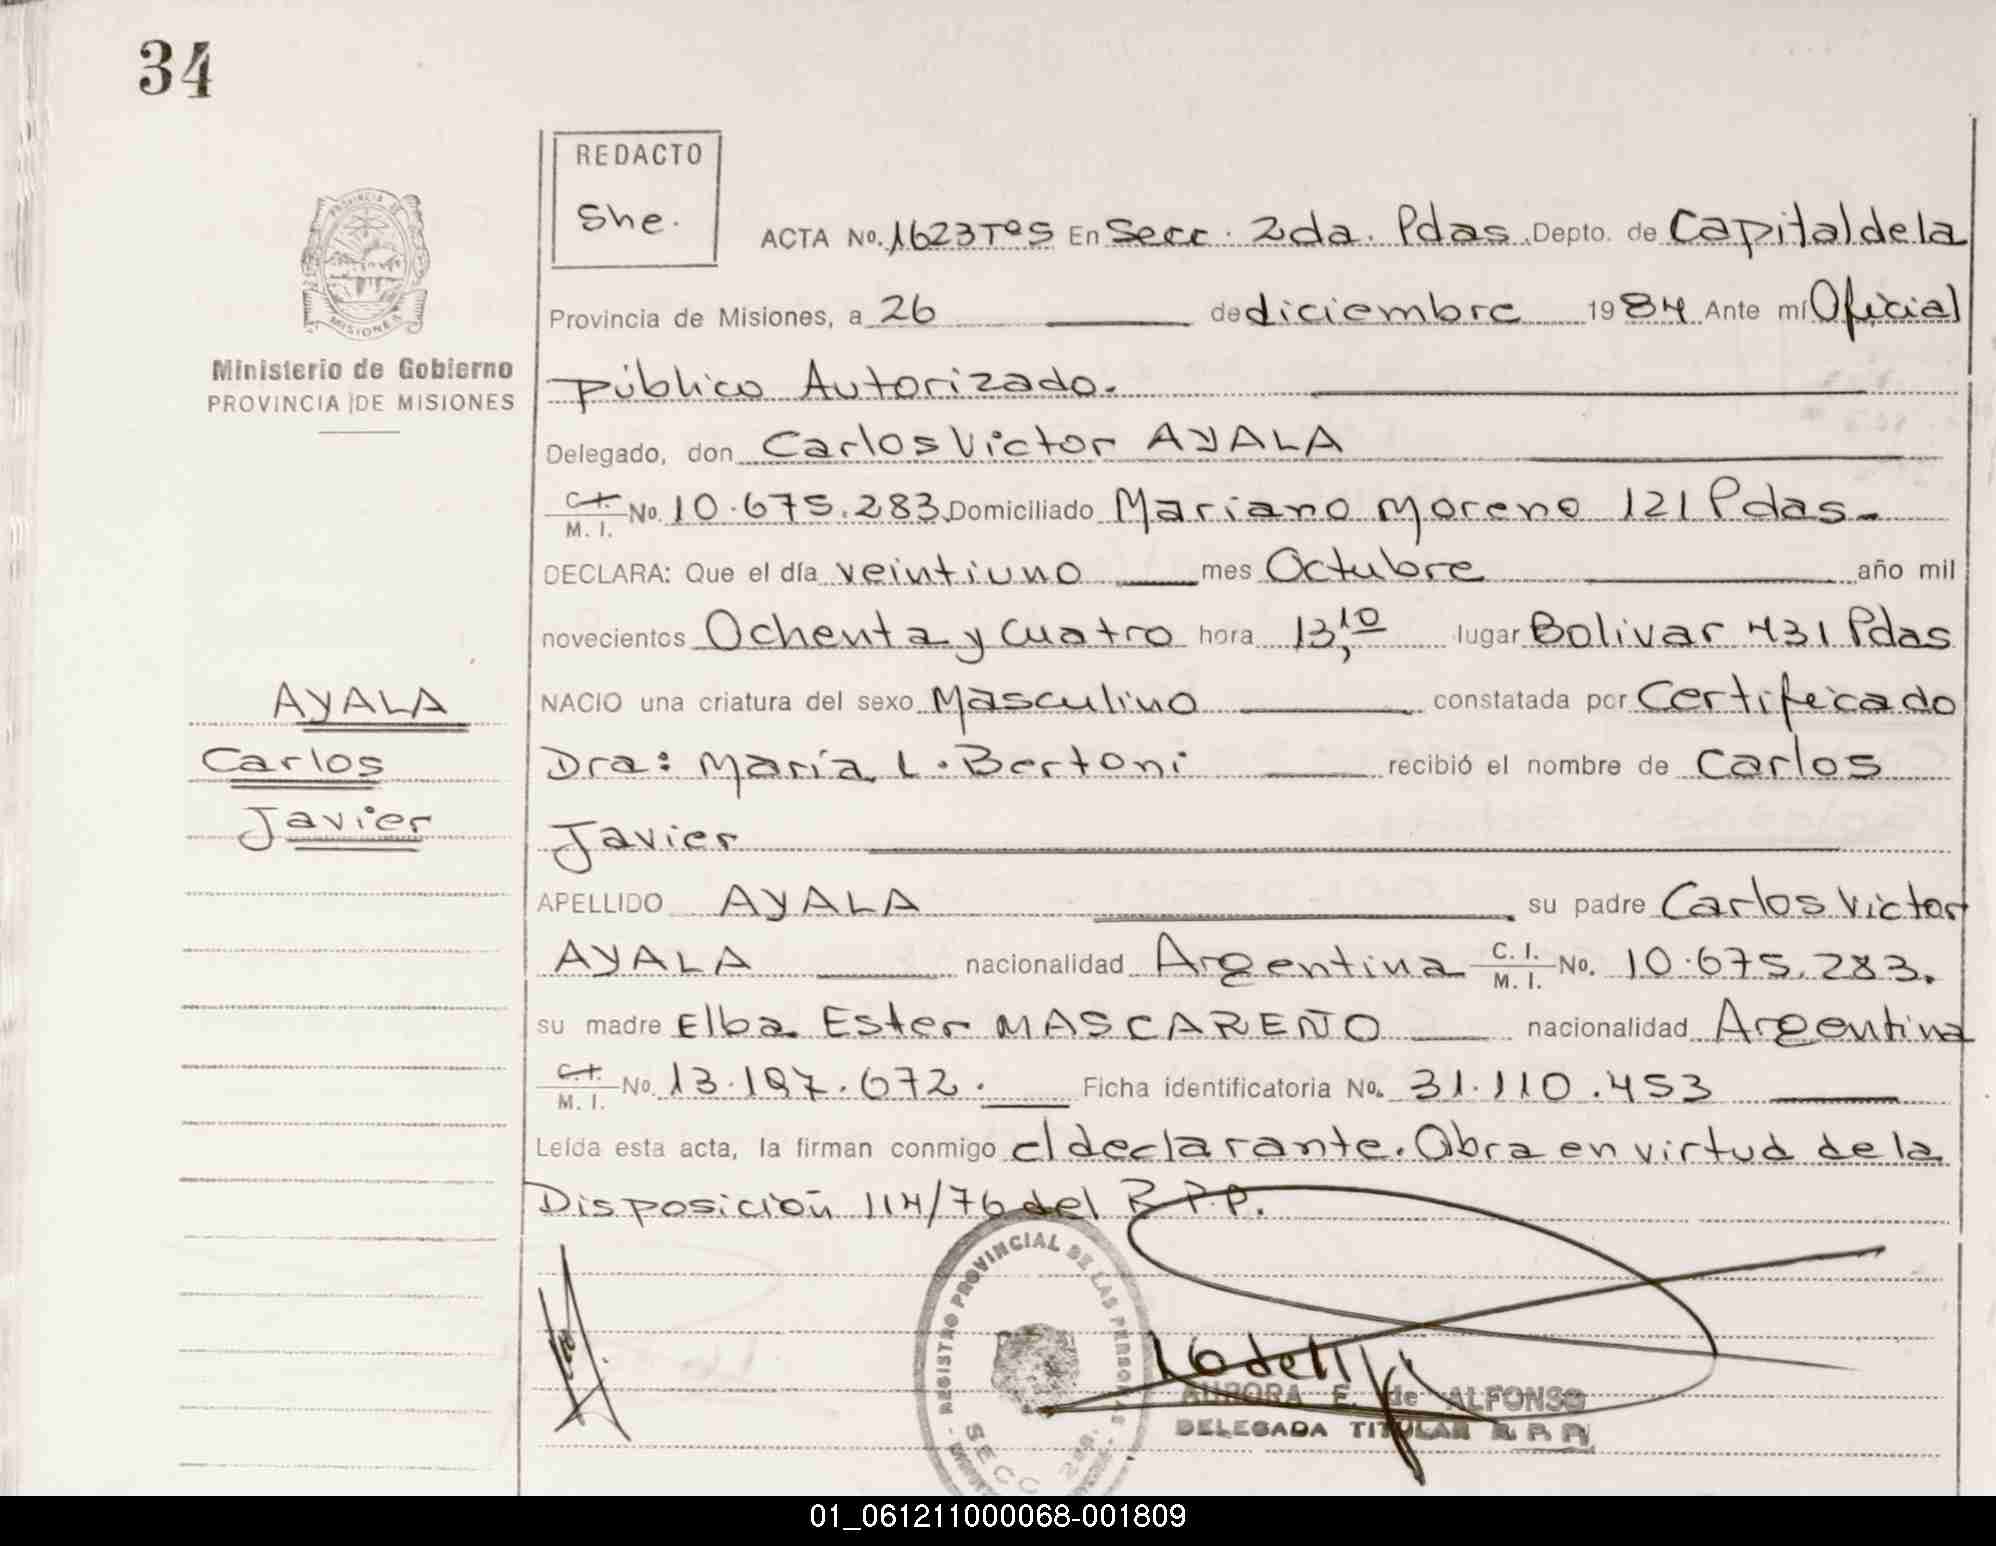 34
REDACTO
She.
PROVINCIA DE
MISIONES
Ministerio de Gobierno
PROVINCIA DE MISIONES
ACTA No. 1623 Tos En Secc. 2da. Pdas. Depto. de Capital de la
Provincia de Misiones, a 26 de diciembre 1984 Ante mí Oficial
Público Autorizado.
Delegado, don Carlos Victor AYALA
C.I. M. I. No. 10.675.283. Domiciliado Mariano Moreno 121 Pdas.
DECLARA: Que el día veintiuno mes Octubre año mil
novecientos Ochenta y cuatro hora 13,10 lugar Bolivar 431 Pdas
NACIO una criatura del sexo Masculino constatada por Certificado
Dra: María L. Bertoni recibió el nombre de Carlos
Javier
AYALA
Carlos
Javier
APELLIDO AYALA su padre Carlos Victor
AYALA nacionalidad Argentina C. I. M. I. No. 10.675.283.
su madre Elba Ester MASCAREÑO nacionalidad Argentina
C.I. M. I. No. 13.197.672. Ficha identificatoria No. 31.110.453
Leída esta acta, la firman conmigo el declarante. Obra en virtud de la
Disposición 114/76 del R.P.P.
REGISTRO PROVINCIAL DE LAS PERSONAS
SECC 2da.
AURORA E. de ALFONSO
DELEGADA TITULAR R. P. P.
01_061211000068-001809